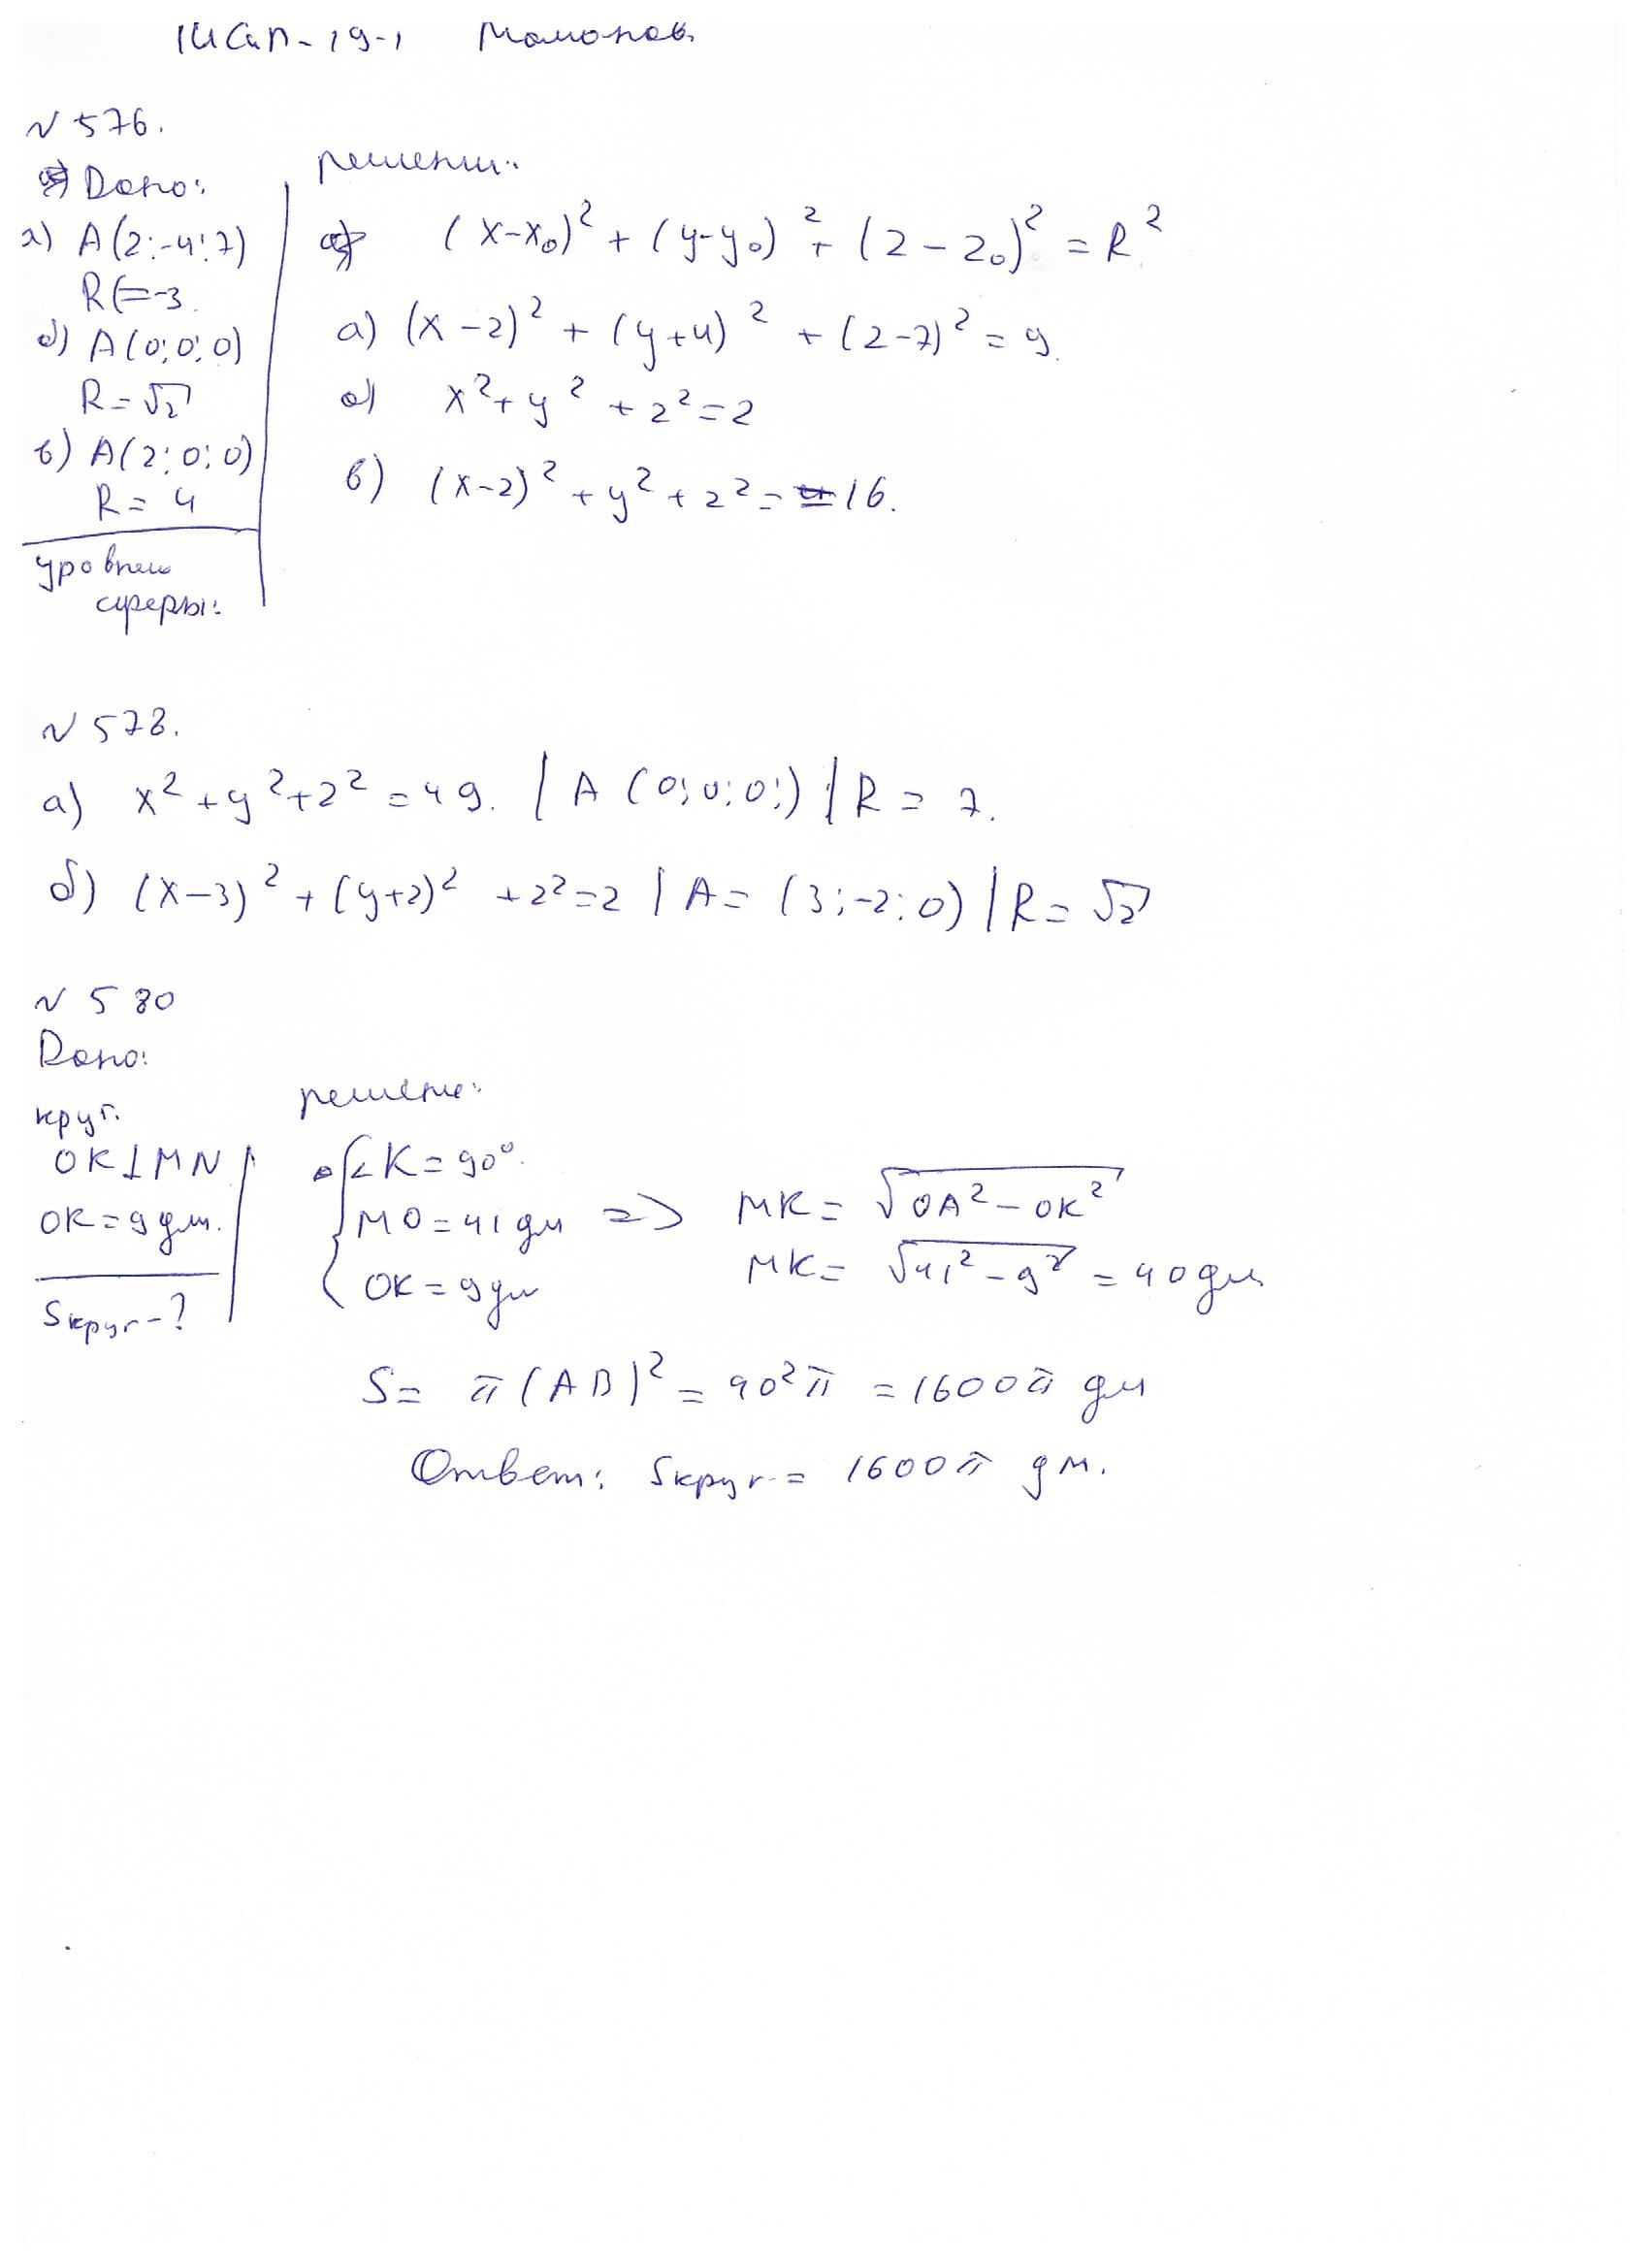 1ИСиП-19-1 Мамонов
N 576.
Дано:
а) A(2;-4;7)
R=-3
б) A(0;0;0)
R=√2
в) A(2;0;0)
R=4
уровнен
сферы:
решении:
(x-x₀)² + (y-y₀)² + (z-z₀)² = R²
а) (x-2)² + (y+4)² + (z-7)² = 9.
б) x²+y²+z²=2
в) (x-2)²+y²+z²=16.
N 578.
а) x²+y²+z²=49. | A(0;0;0;) | R=7.
б) (x-3)²+(y+2)²+z²=2 | A=(3;-2;0) | R=√2
N 580
Дано:
круг.
OK⊥MN
OK=9дм.
Sкруг-?
решение:
∠K=90°
MO=41дм => MK=√OA²-OK²
OK=9дм MK=√41²-9²=40дм
S=π(AB)²=40²π=1600π дм
Ответ: Sкруг=1600π дм.